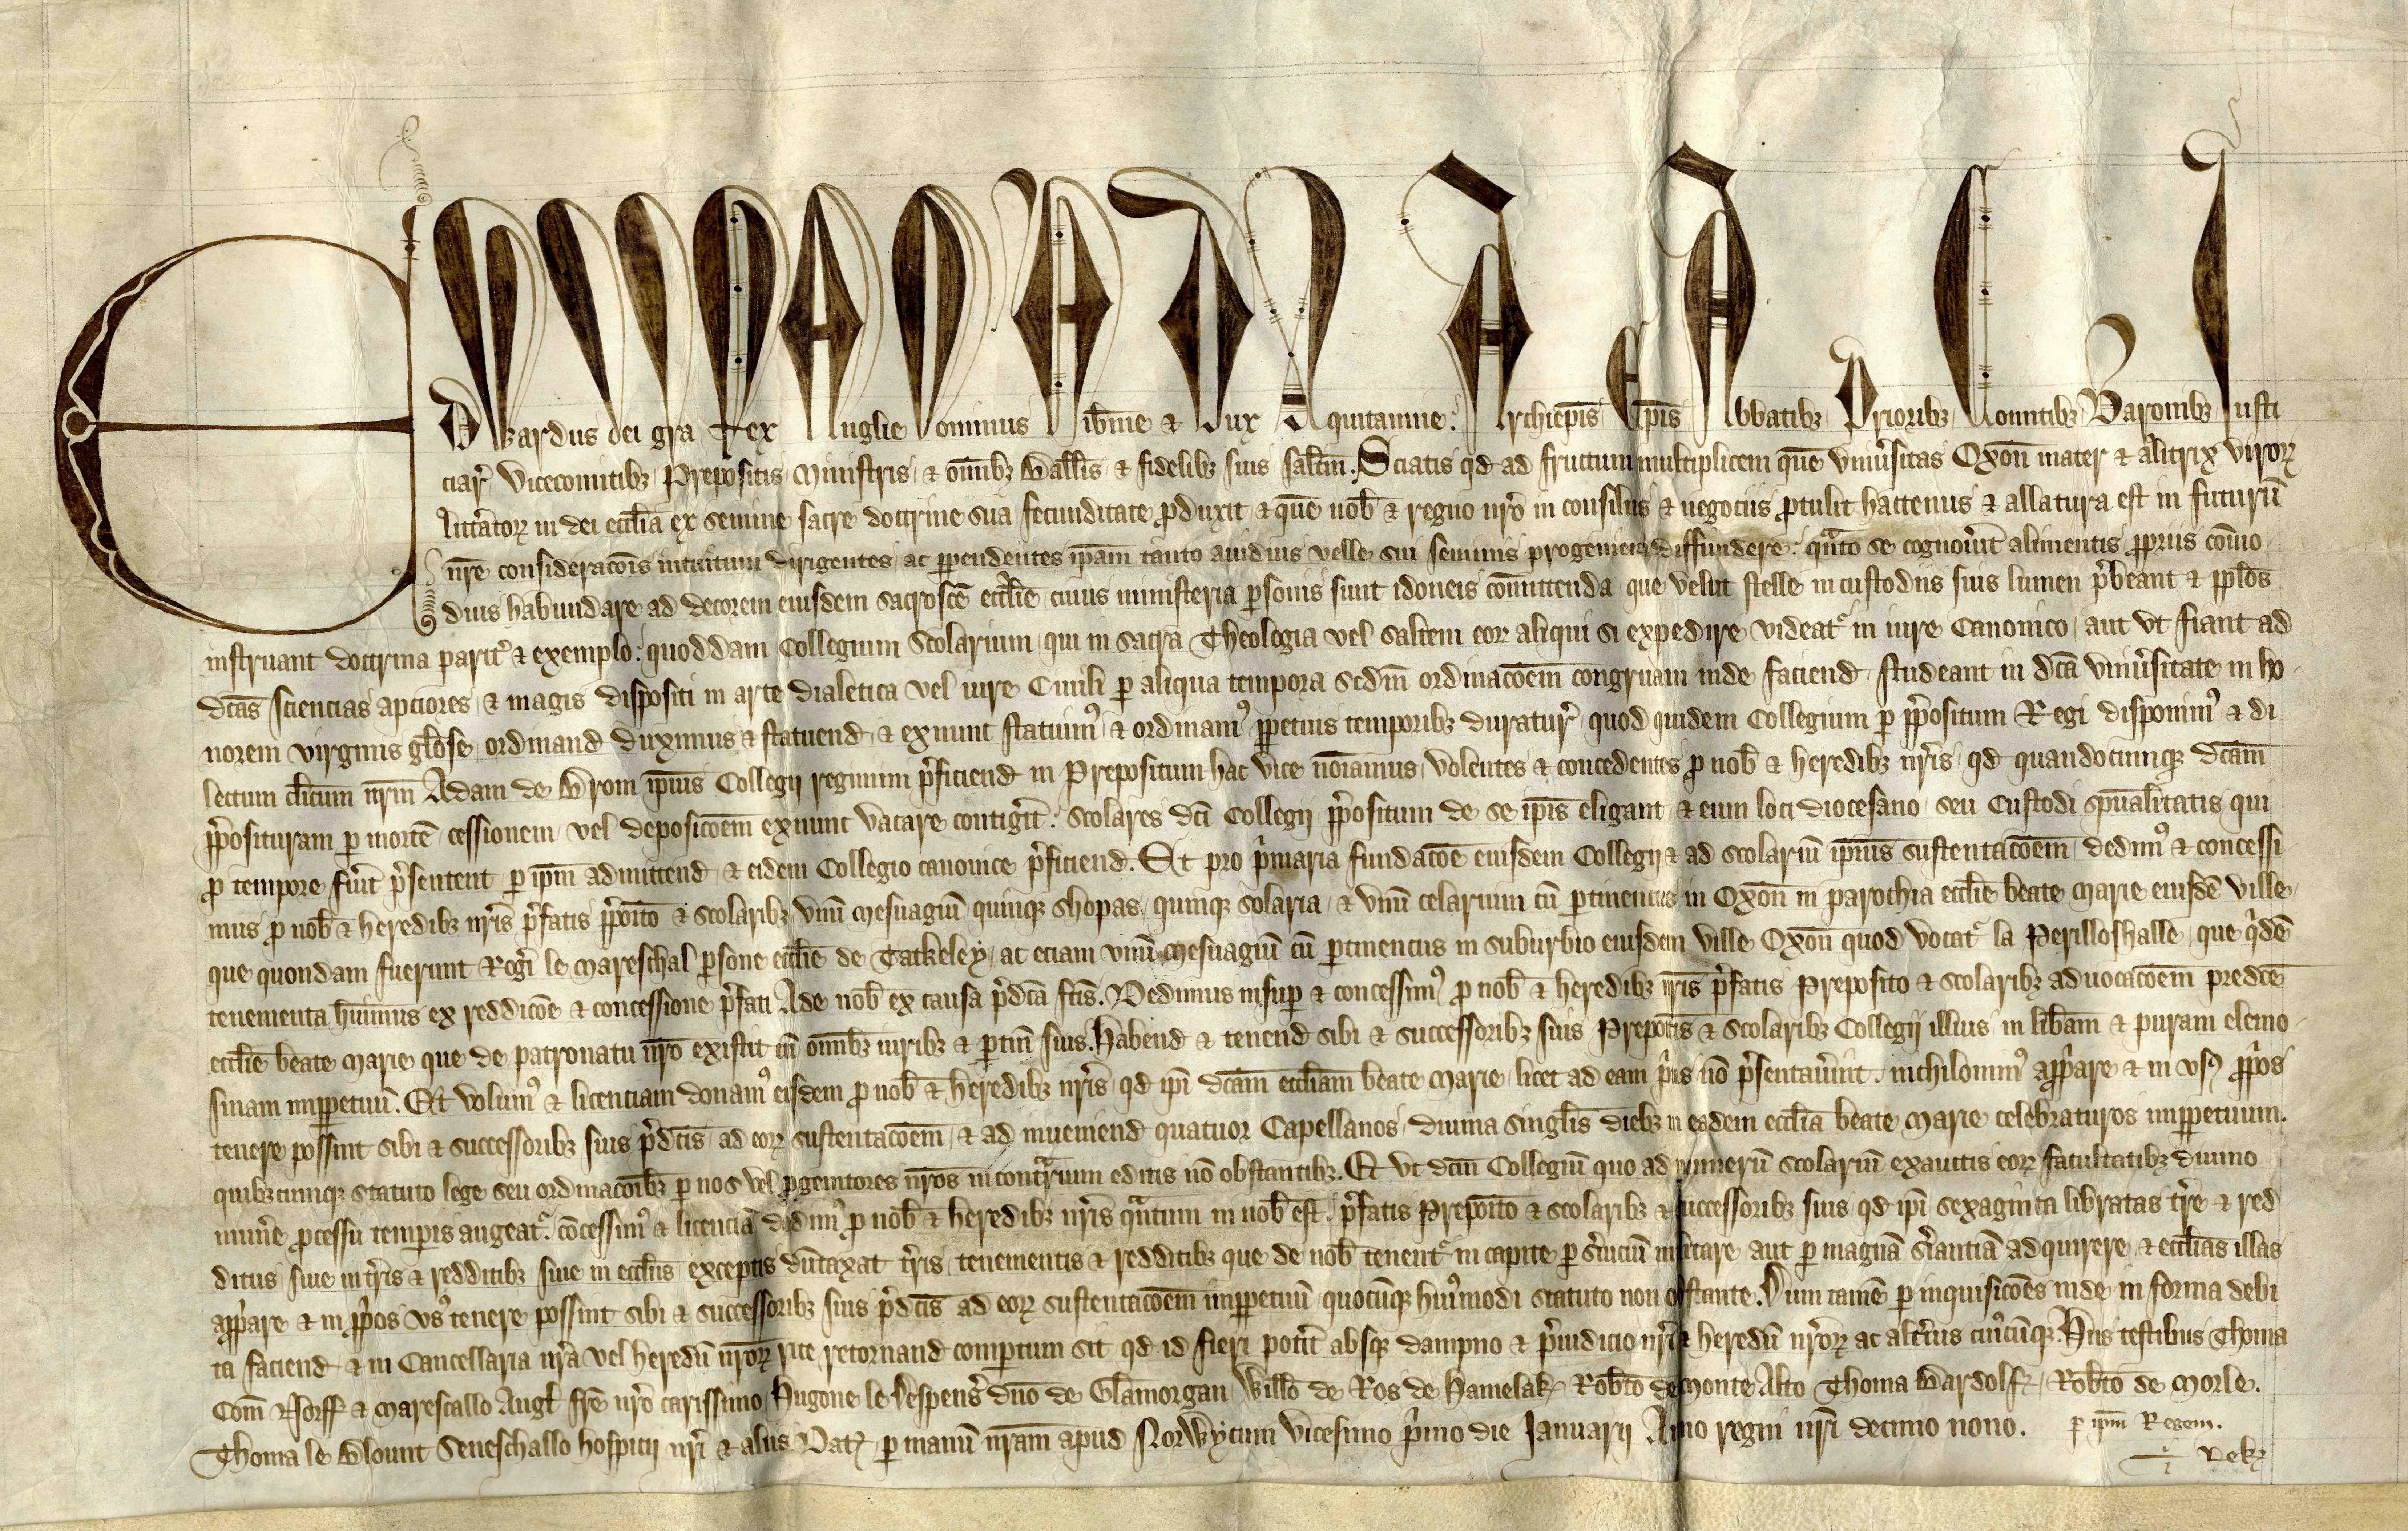 Edwardus dei gr̄a Rex Anglie Dominus Hib̄nie ⁊ Dux Aquitannie. Archiep̄is Ep̄is Abbatibꝫ Prioribꝫ Comitibꝫ Baronibꝫ Justi
ciar̄ Vicecomitibꝫ Prepositis Ministris ⁊ om̄ibꝫ Ball̄is ⁊ fidelibꝫ suis sal̄tm. Sciatis qd̄ ad fructum multiplicem quē vniu̓sitas Oxon̄ mater ⁊ altrix viroꝝ
litt̓atoꝝ in dei eccl̄ia ex semine sacre doctrine sua fecunditate ꝓduxit ⁊ quē nob̄ ⁊ regno nr̄o in consiliis ⁊ negociis ꝓtulit hactenus ⁊ allatura est in futurū
nr̄e consideracōis intuitum dirigentes ac ꝑpendentes ip̄am tanto auidius velle sui seminis progeniem diffundere. qn̄to se cognou̓it alimentis ꝓpriis com̄o
dius habundare ad decorem eiusdem sacrosc̄e eccl̄ie cuius ministeria ꝑsonis sunt idoneis com̄ittenda que velut stelle in custodiis suis lumen p̓beant ⁊ ppl̄os
instruant doctrina parit̓ ⁊ exemplo. quoddam Collegium Scolarium qui in sacra Theologia vel saltem eoꝝ aliqui si expedire videat̓ in iure Canonico aut vt fiant ad
dc̄as sciencias apciores ⁊ magis dispositi in arte dialetica vel iure Ciuili ꝑ aliqua tempora sedm̄ ordinacōem congruam inde faciend̄ studeant in dc̄a vniu̓sitate in ho
norem virginis gl̄ose ordinand̄ duximus ⁊ statuend̄ ⁊ exnunc statuim̓ ⁊ ordinam̓ ꝑpetuis temporibꝫ duratur̄ quod quidem Collegium ꝑ p̄positum Regi disponim̓ ⁊ di
lectum cl̄icum nr̄m Adam de Brom ip̄ius Collegij regimini p̓ficiend̄ in Prepositum hac vice noīamus volentes ⁊ concedentes ꝓ nob̄ ⁊ heredibꝫ nr̄is qd̄ quandocumqꝫ dc̄am
p̄posituram ꝑ mortē cessionem vel deposicōem exnunc vacare contig̓it. scolares dc̄i Collegij p̄positum de se ip̄is eligant ⁊ eum loci diocesano seu Custodi sp̄ualitatis qui
ꝓ tempore fu̓it p̓sentent ꝑ ip̄m admittend̄ ⁊ eidem Collegio canonice p̓ficiend̄. Et pro p̓maria fundacōe eiusdem Collegij ⁊ ad scolariū ip̄ius sustentacōem dedim̓ ⁊ concessi
mus ꝓ nob̄ ⁊ heredibꝫ nr̄is p̓fatis p̄poīto ⁊ scolaribꝫ vnū mesuagiū quinqꝫ shopas quinqꝫ solaria ⁊ vnū celarium cū ꝑtinenciis in Oxon̄ in parochia eccl̄ie beate Marie eiusdē ville
que quondam fuerunt Rog̓i le Mareschal ꝑsone eccl̄ie de Tatkeley ac eciam vnū mesuagiū cū ꝑtinenciis in suburbio eiusdem ville Oxon̄ quod vocat̓ la Perilloshalle que q̓dē
tenementa hūimus ex reddicōe ⁊ concessione p̓fati Ade nob̄ ex causa p̓dc̄a fc̄is. Dedimus insuꝑ ⁊ concessim̓ ꝓ nob̄ ⁊ heredibꝫ nr̄is p̓fatis Preposito ⁊ scolaribꝫ aduocacōem predc̄e
eccl̄ie beate Marie que de patronatu nr̄o existit cū om̄ibꝫ iuribꝫ ⁊ ꝑtin̄ suis. Habend̄ ⁊ tenend̄ sibi ⁊ successoribꝫ suis Prepoītis ⁊ Scolaribꝫ Collegij illius in lib̄am ⁊ puram elemo
sinam imꝑpetuū. Et volum̓ ⁊ licenciam donam̓ eisdem ꝓ nob̄ ⁊ heredibꝫ nr̄is qd̄ ip̄i dc̄am eccl̄iam beate Marie licet ad eam p̓us nō p̓sentau̓int. nichilomin̓ app̓are ⁊ in vsꝰ ꝓp̓os
tenere possint sibi ⁊ successoribꝫ suis p̓dc̄is ad eoꝝ sustentacōem ⁊ ad inueniend̄ quatuor Capellanos diuina singl̄is diebꝫ in eadem eccl̄ia beate Marie celebraturos imꝑpetuum.
quibꝫcumqꝫ statuto lege seu ordinacōibꝫ ꝑ nos vel ꝓgenitores nr̄os incont̓rium editis nō obstantibꝫ. Et vt dc̄m Collegiū quo ad numerū scolariū exauctis eoꝝ facultatibꝫ diuino
mun̓e ꝓcessu temp̄is augeat̓. cōcessim̓ ⁊ licenciā dedim̓ ꝓ nob̄ ⁊ heredibꝫ nr̄is qn̄tum in nob̄ est p̓fatis Prepoīto ⁊ scolaribꝫ ⁊ successoribꝫ suis qd̄ ip̄i sexaginta libratas tr̄e ⁊ red
ditus siue in tr̄is ⁊ redditibꝫ siue in eccl̄iis exceptis dūtaxat tr̄is tenementis ⁊ redditibꝫ que de nob̄ tenent̓ in capite ꝑ s̓uiciū militare aut ꝑ magnā s̓iantiā adquirere ⁊ eccl̄ias illas
app̓are ⁊ in ꝓp̓os vsꝰ tenere possint sibi ⁊ successoribꝫ suis p̓dc̄is ad eoꝝ sustentacōem imꝑpetuū quocūqꝫ hui̓modi statuto non obstante. Dum tamē ꝑ inquisicōes inde in forma debi
ta faciend̄ ⁊ in Cancellaria nr̄a vel heredū nr̄oꝝ rite retornand̄ comꝑtum sit qd̄ id fieri pot̓it absqꝫ dampno ⁊ p̓iudicio nr̄i ⁊ heredū nr̄oꝝ ac alt̓ius cuiu̓cūqꝫ. Hiis testibus Thoma
Com̄ Norff̄ ⁊ Marescallo Angl̄ fr̄e nr̄o carissimo Hugone le Despens̓ dn̄o de Glamorgan Willo de Ros de Hamelak Rob̄to de Monte Alto Thoma Bardolf Rob̄to de Morle.
Thoma le Blount Seneschallo hospicij nr̄i ⁊ aliis. Dat̓ ꝑ manū nr̄am apud Norwycum vicesimo p̓mo die Januarij Anno regni nr̄i decimo nono. ꝑ ip̄m Regem.